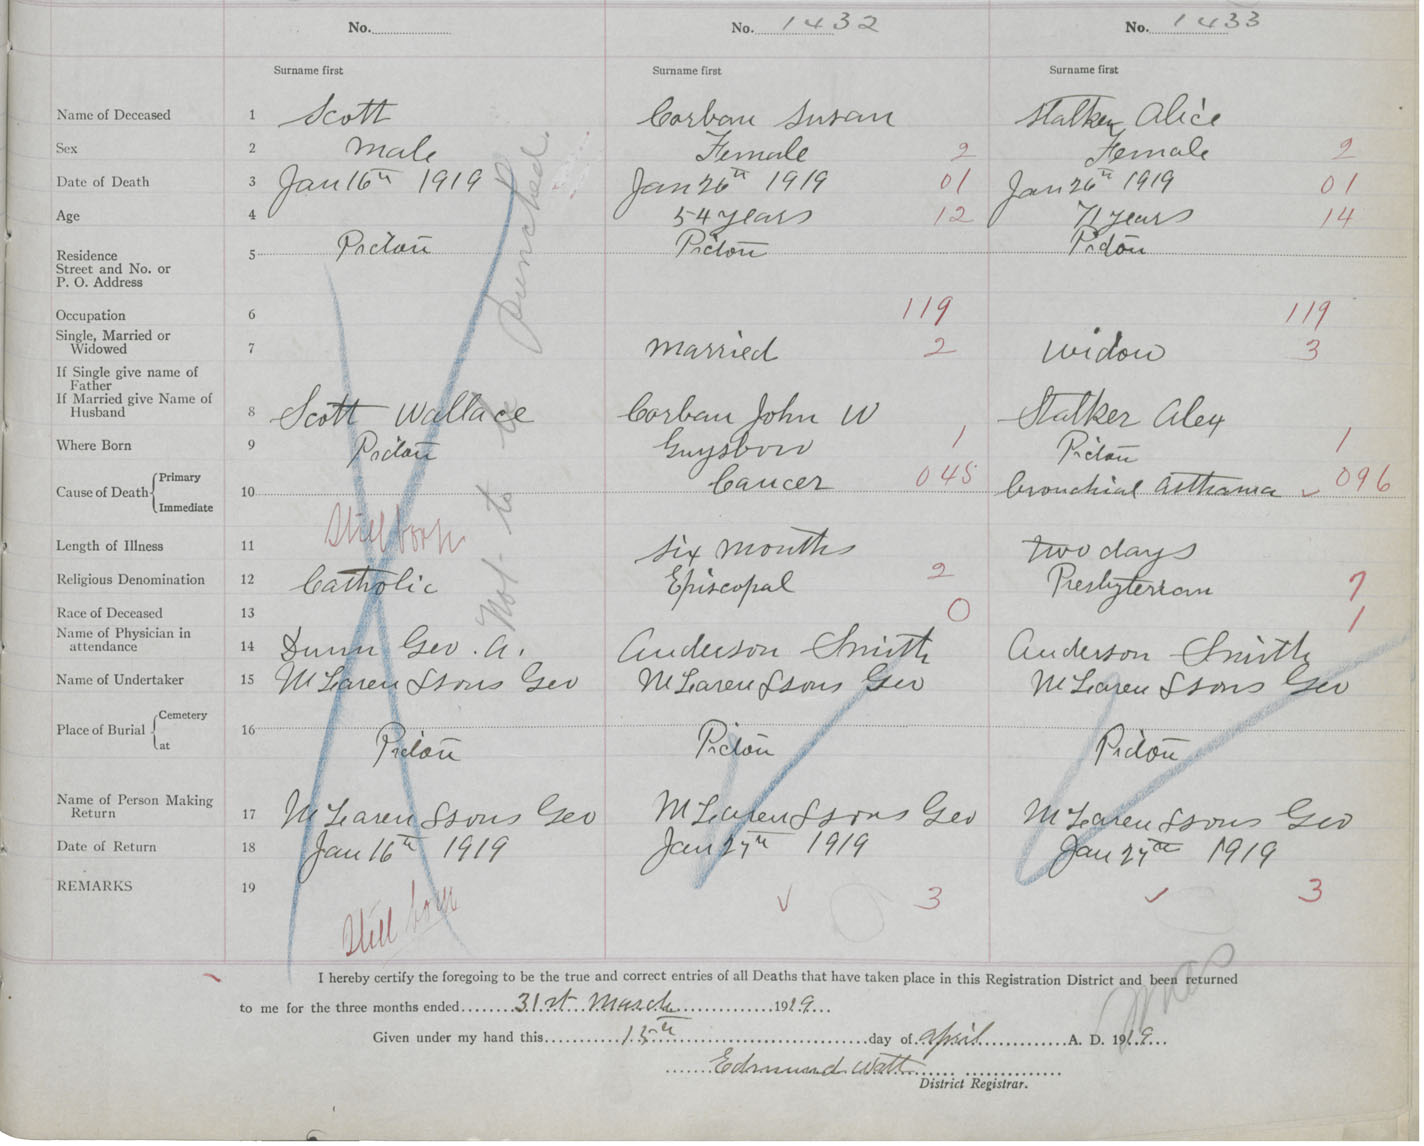 No. No. 1432 No. 1433
Surname first Surname first Surname first
Name of Deceased 1 Scott Corban Susan Stalker Alice
Sex 2 Male Female 2 Female 2
Date of Death 3 Jan 16th 1919 Jan 26th 1919 01 Jan 26th 1919 01
Age 4 54 years 12 71 years 14
Residence
Street and No. or
P. O. Address 5 Pictou Pictou Pictou
Occupation 6 119 119
Single, Married or
Widowed 7 Married 2 Widow 3
If Single give name of
Father
If Married give Name of
Husband 8 Scott Wallace Corban John W Stalker Alex
Where Born 9 Pictou Guysboro 1 Pictou 1
Cause of Death Primary
Immediate 10 Cancer 045 Bronchial Asthama 096
Still born
Length of Illness 11 Six Months two days
Religious Denomination 12 Catholic Episcopal 2 Presbyterian 7
Race of Deceased 13 0 1
Name of Physician in
attendance 14 Dunn Geo. A. Anderson Smith Anderson Smith
Name of Undertaker 15 McLaren & Sons Geo McLaren & Sons Geo McLaren & Sons Geo
Place of Burial Cemetery
at 16 Pictou Pictou Pictou
Name of Person Making
Return 17 McLaren & Sons Geo McLaren & Sons Geo McLaren & Sons Geo
Date of Return 18 Jan 16th 1919 Jan 27th 1919 Jan 27th 1919
REMARKS 19 3 3
Still born
Not to be punched
I hereby certify the foregoing to be the true and correct entries of all Deaths that have taken place in this Registration District and been returned
to me for the three months ended 31st March 1919
Given under my hand this 15th day of April A. D. 1919
Edmund Watt
District Registrar.